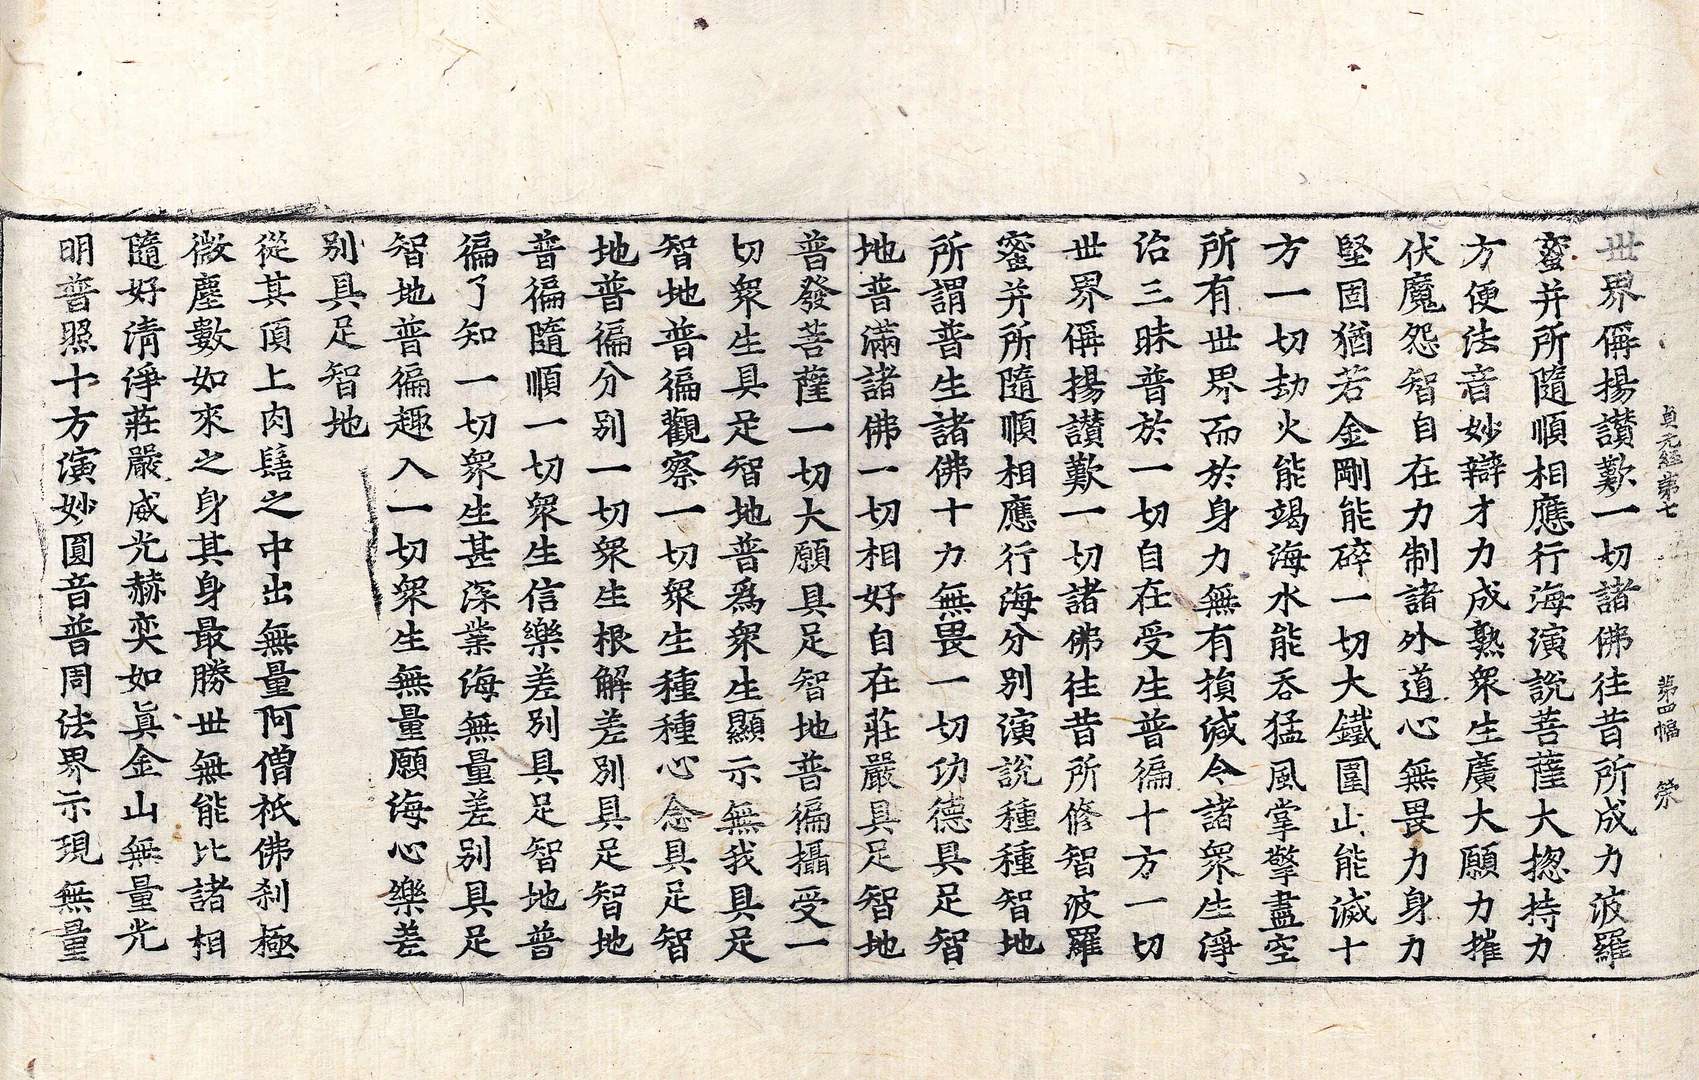 貞元經第七 第四幅 榮
世界稱揚讃歎一切諸佛往昔所成力波羅
蜜并所隨順相應行海演說菩薩大揔持力
方便法音妙辯才力成熟衆生廣大願力摧
伏魔怨智自在力制諸外道心無畏力身力
堅固猶若金剛能碎一切大鐵圍山能滅十
方一切劫火能竭海水能吞猛風掌擎盡空
所有世界而於身力無有損減令諸衆生淨
治三昧普於一切自在受生普徧十方一切
世界稱揚讃歎一切諸佛往昔所修智波羅
蜜并所隨順相應行海分別演說種種智地
所謂普生諸佛十力無畏一切功德具足智
地普滿諸佛一切相好自在莊嚴具足智地
普發菩薩一切大願具足智地普徧攝受一
切衆生具足智地普爲衆生顯示無我具足
智地普徧觀察一切衆生種種心念具足智
地普徧分別一切衆生根解差別具足智地
普徧隨順一切衆生信樂差別具足智地普
徧了知一切衆生甚深業海無量差別具足
智地普徧趣入一切衆生無量願海心樂差
別具足智地
從其頂上肉髻之中出無量阿僧祇佛刹極
微塵數如來之身其身最勝世無能比諸相
隨好清淨莊嚴威光赫奕如眞金山無量光
明普照十方演妙圓音普周法界示現無量